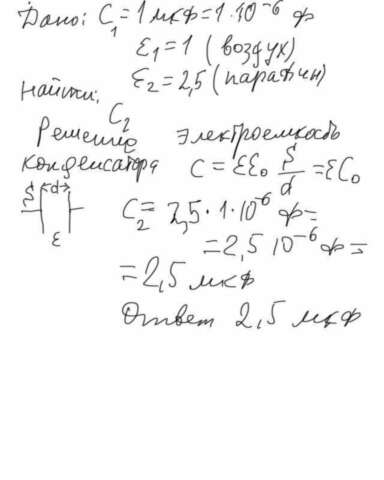 Дано: C₁ = 1 мкф = 1·10⁻⁶ ф
ε₁ = 1 (воздух)
ε₂ = 2,5 (парафин)
Найти:
C₂
Решение электроемкость
конденсатора C = εε₀ S/d = εC₀
S d
ε
C₂ = 2,5·1·10⁻⁶ ф =
= 2,5 10⁻⁶ ф =
= 2,5 мкф
Ответ 2,5 мкф